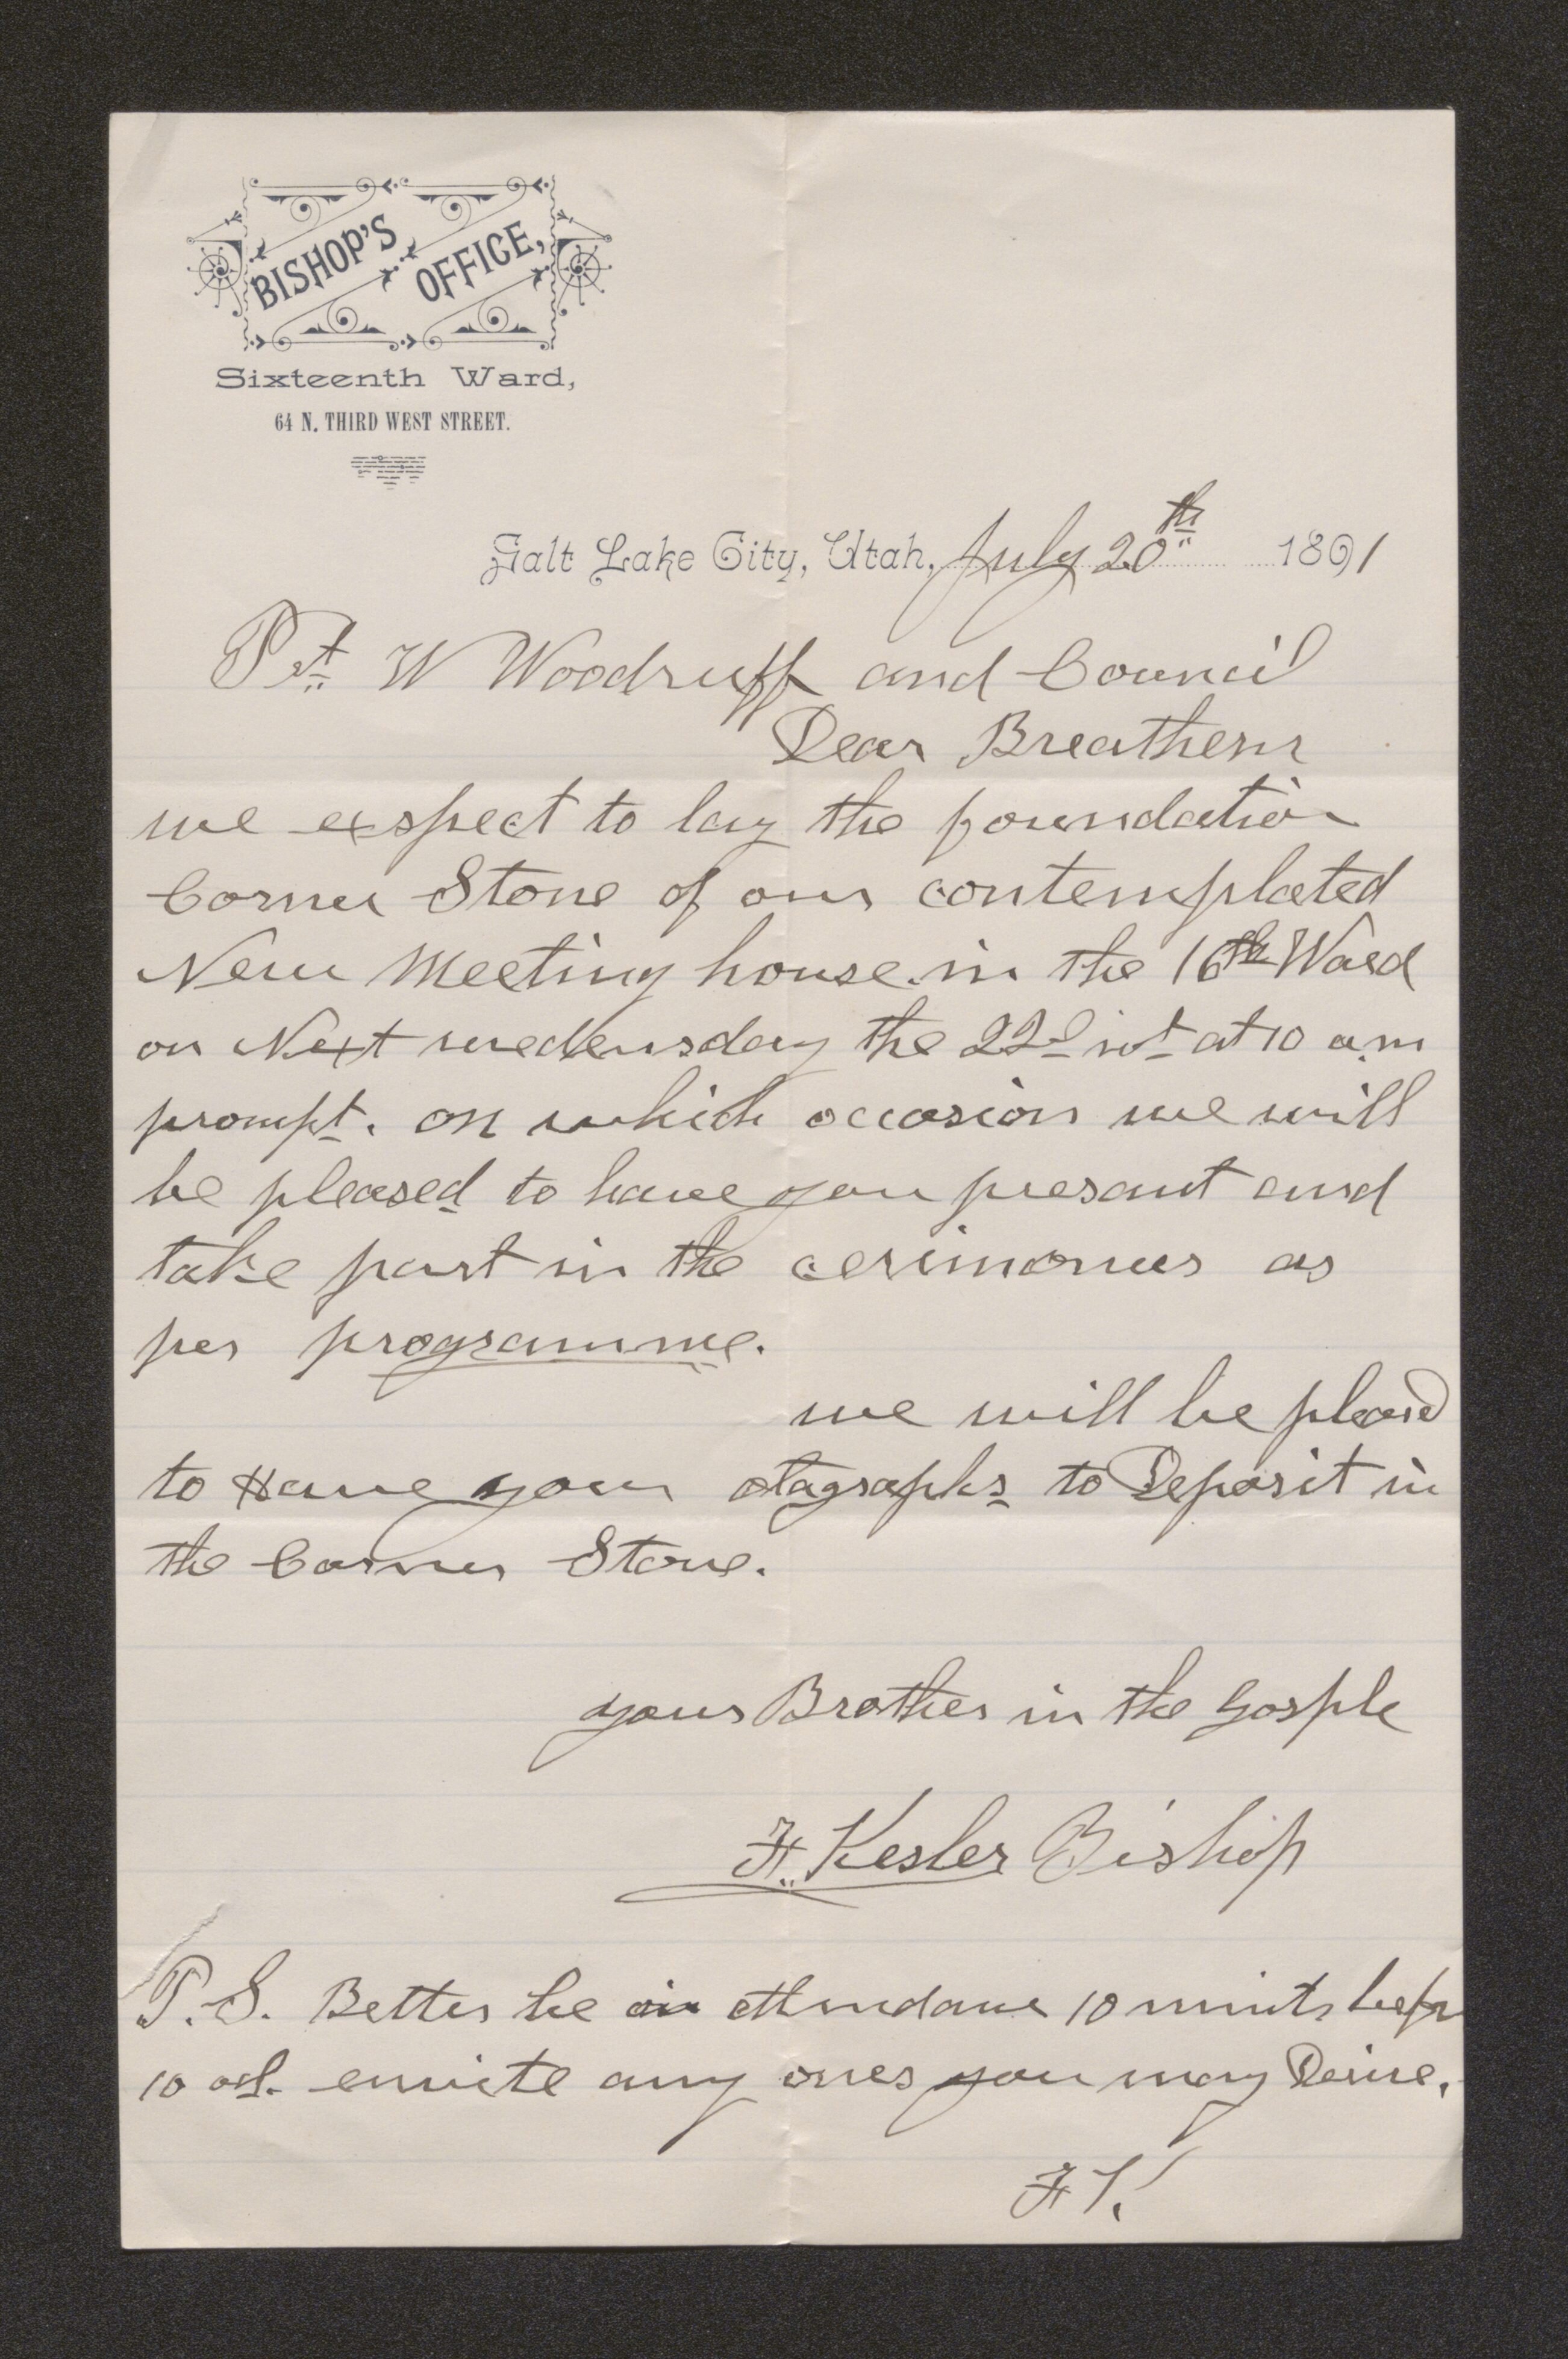 BISHOP'S OFFICE,
Sixteenth Ward,
64 N. THIRD WEST STREET.
Salt Lake City, Utah, July 20th 1891
Pst W Woodruff and Council
Dear Breathern
we exspect to lay the foundation
Corner Stone of our contemplated
New Meeting house in the 16th Ward
on Next wedensday the 22d ist at 10 a.m
prompt. on which occasion we will
be pleased to have you presant and
take part in the cerimonies as
per programme.
we will be pleasd
to Have your otagraphs to Deposit in
the Corner Stone.
your Brother in the Gosple
F. Kesler Bishop
P.S. Better be in attendance 10 minits befor
10 ocl. envite any ones you may Desire.
F K.